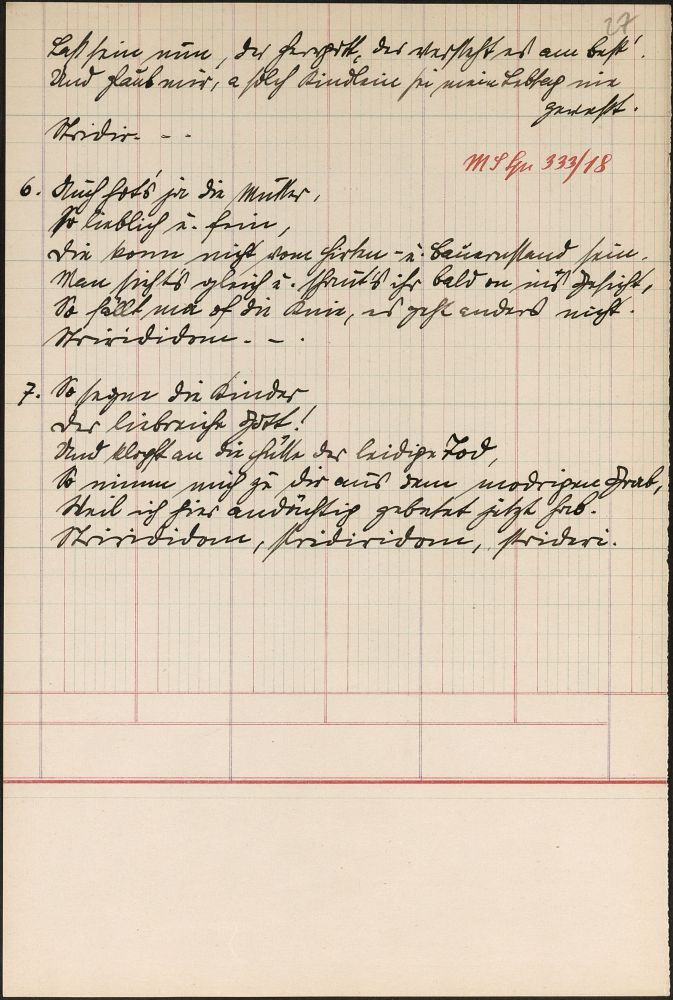 27
Laß sein nun, der Herrgott, der versteht es am best'.
Und glaub mir, a solch Kindlein sei mein Lebtag nie
gewest.
Stridir. - -
MS Gu 333/18
6. Auch hot's ja die Mutter,
So lieblich u. fein,
Die konn nicht vom Hirten- u. Bauernstand sein.
Man sieht's gleich u. schaut's ihr bald on ins Gesicht,
So fällt ma of die Knie, es geht anders nicht.
Stririrididom. - .
7. So segne die Kinder
Der liebreiche Gott!
Und klopft an die Hütte der leidige Tod,
So nimm mich zu dir aus dem modrigen Grab,
Weil ich hier andächtig gebetet jetzt hab.
Stririrididom, stridiridom, strideri.